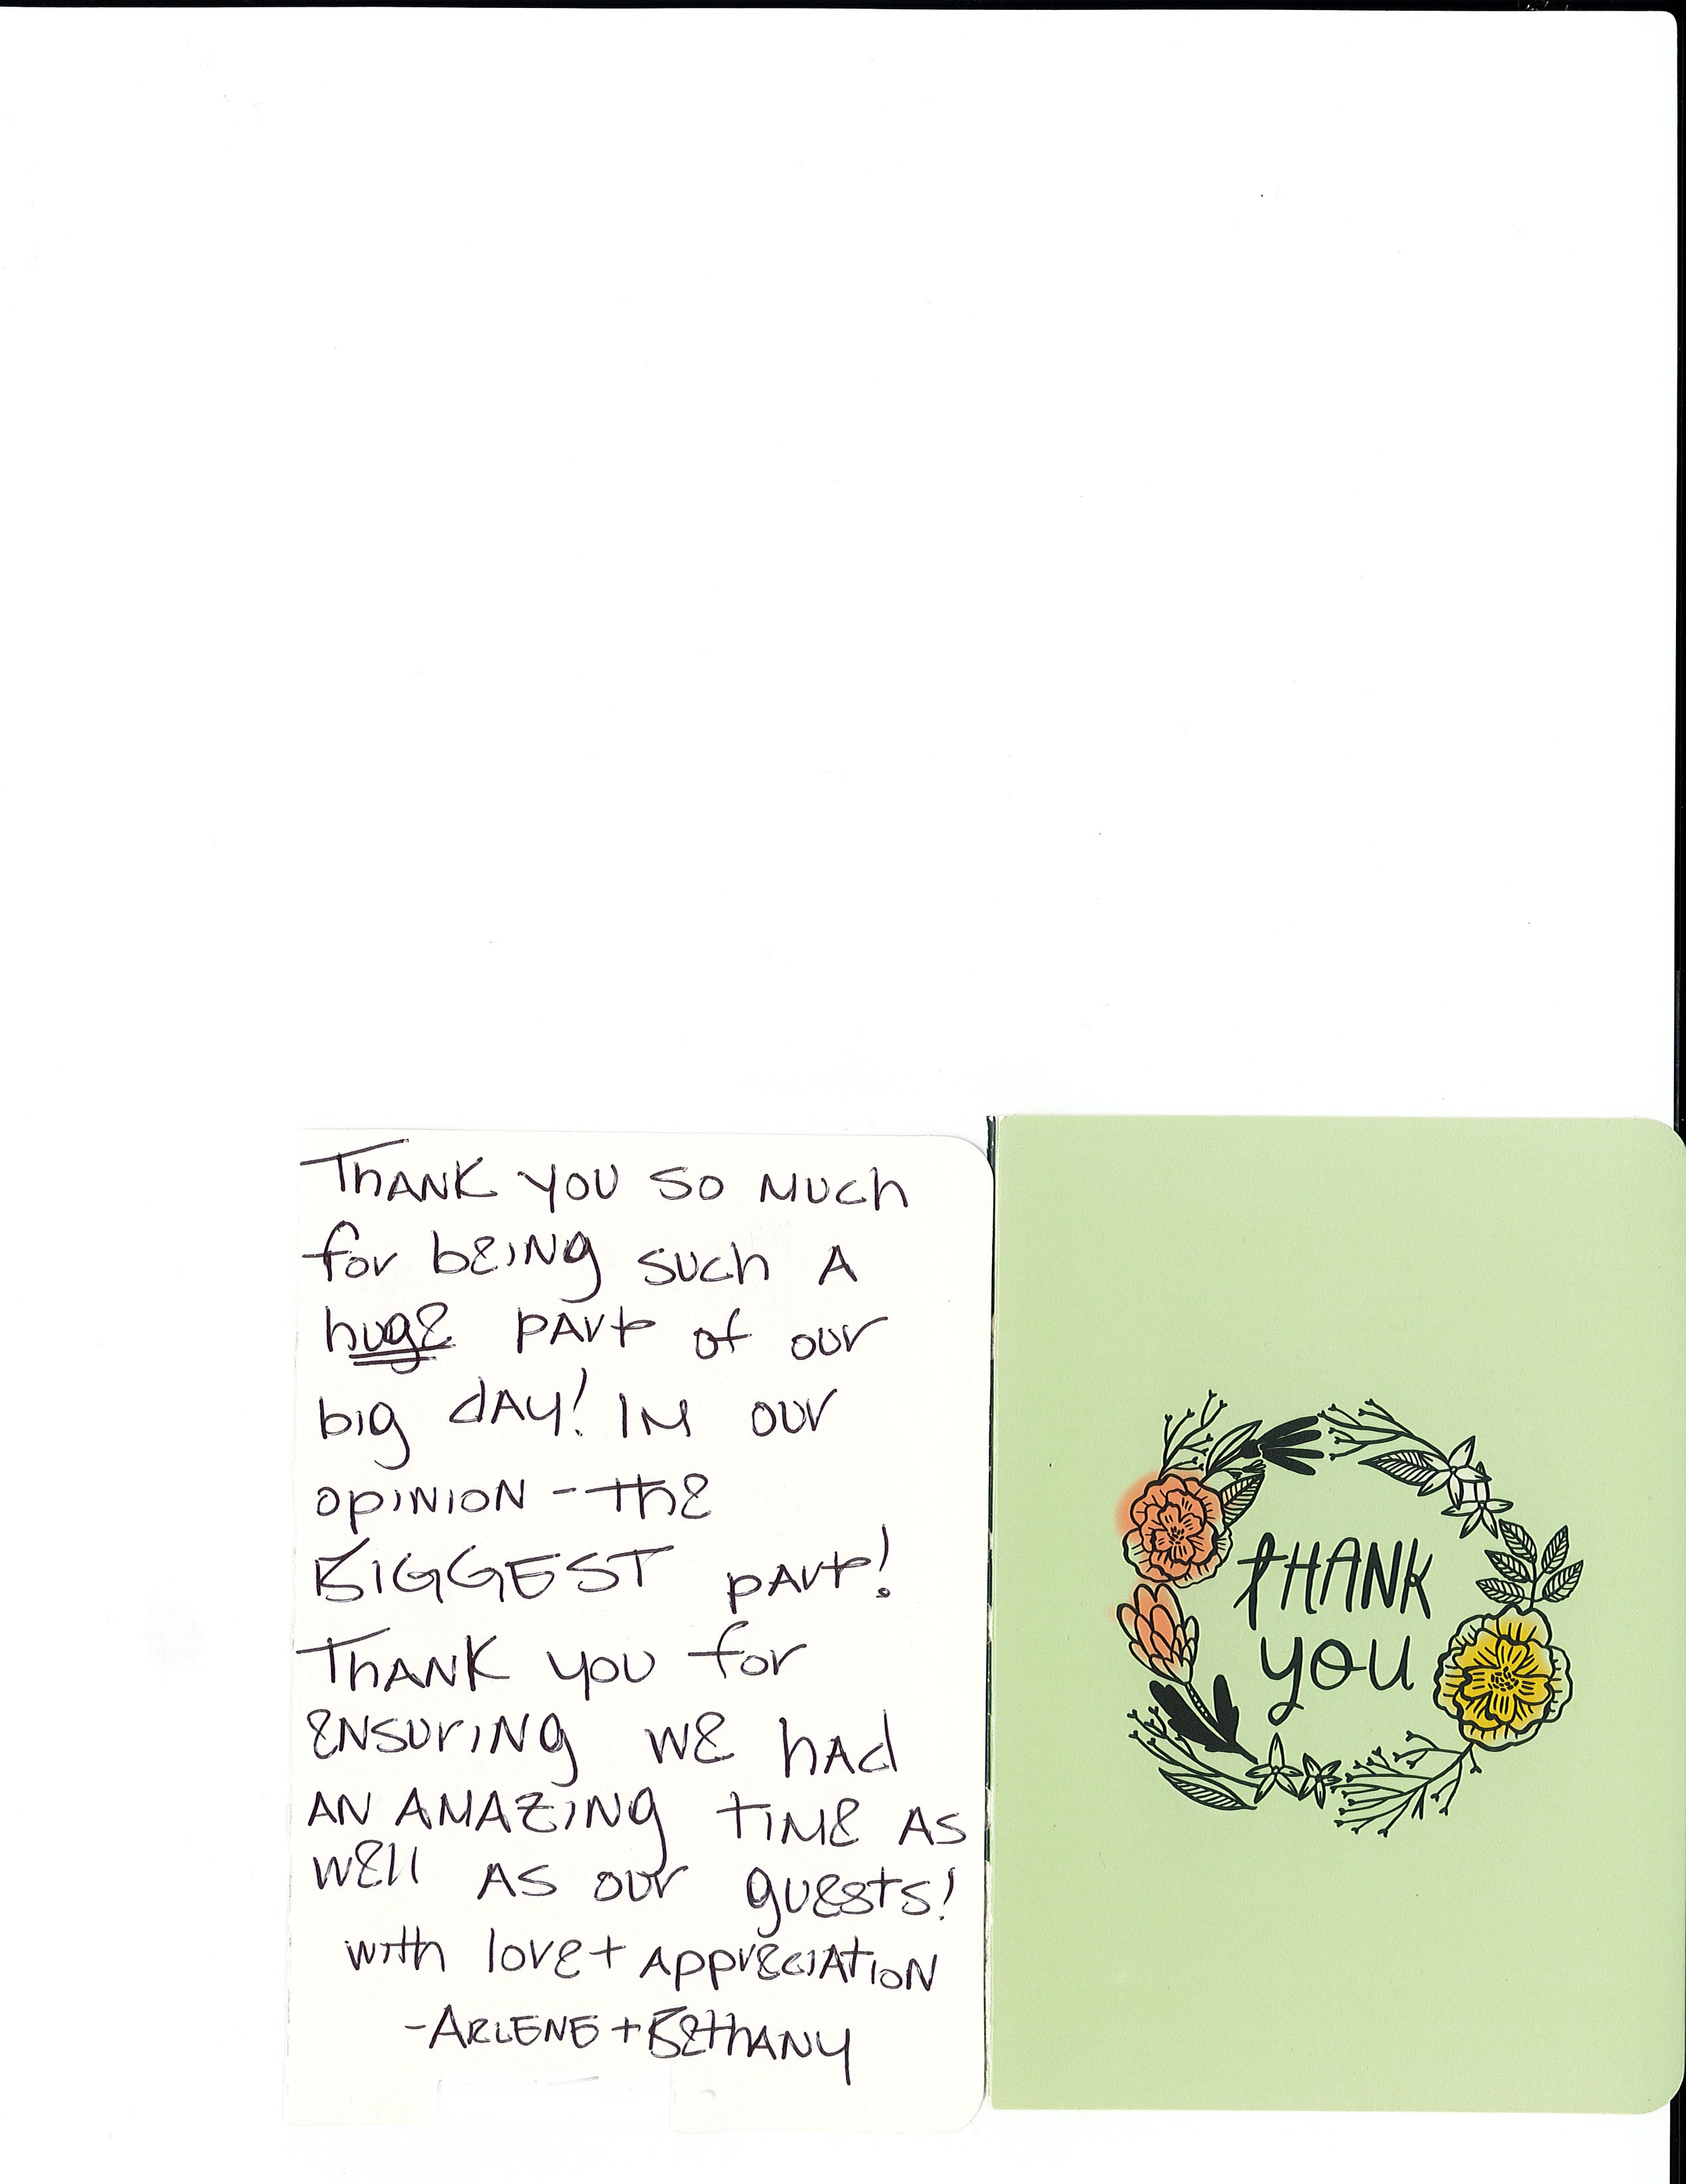 Thank you so much
for being such a
huge part of our
big day! IM our
opinion - the
BIGGEST part!
Thank you for
ensuring we had
an amazing time as
well as our guests!
with love + appreciation
- Arlene + Bethany
THANK
you